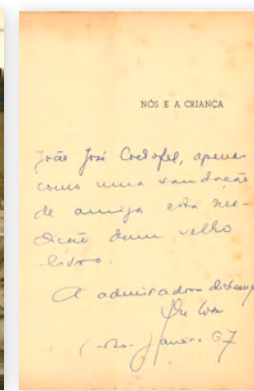 NÓS E A CRIANÇA
João José Cochofel, apenas
como uma saudação
de amiga esta ree-
dição dum velho
livro.
A admiradora
Janeiro 67